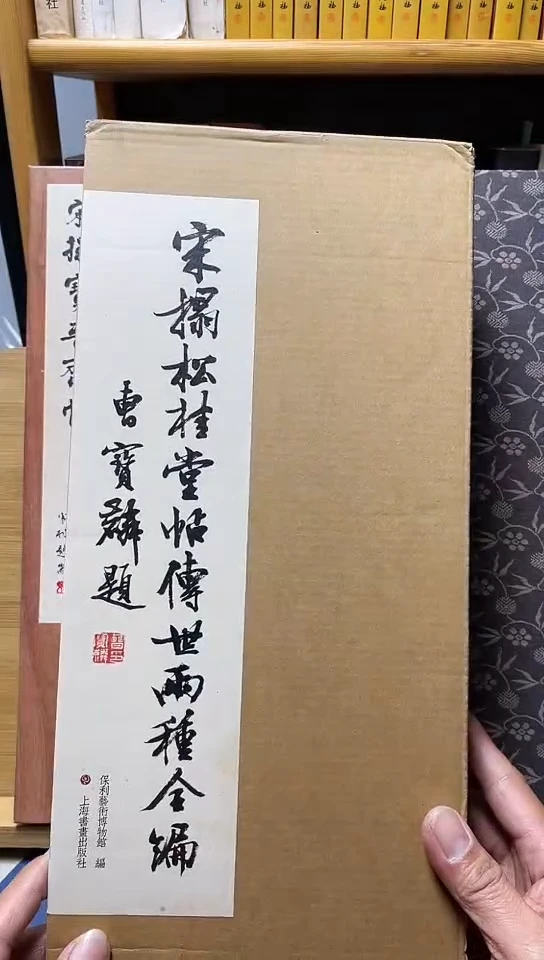 宋搨松桂堂帖傳世兩種全編
曹寶麟題
保利藝術博物館 編
上海書畫出版社
宋搨寶晉齋帖
社